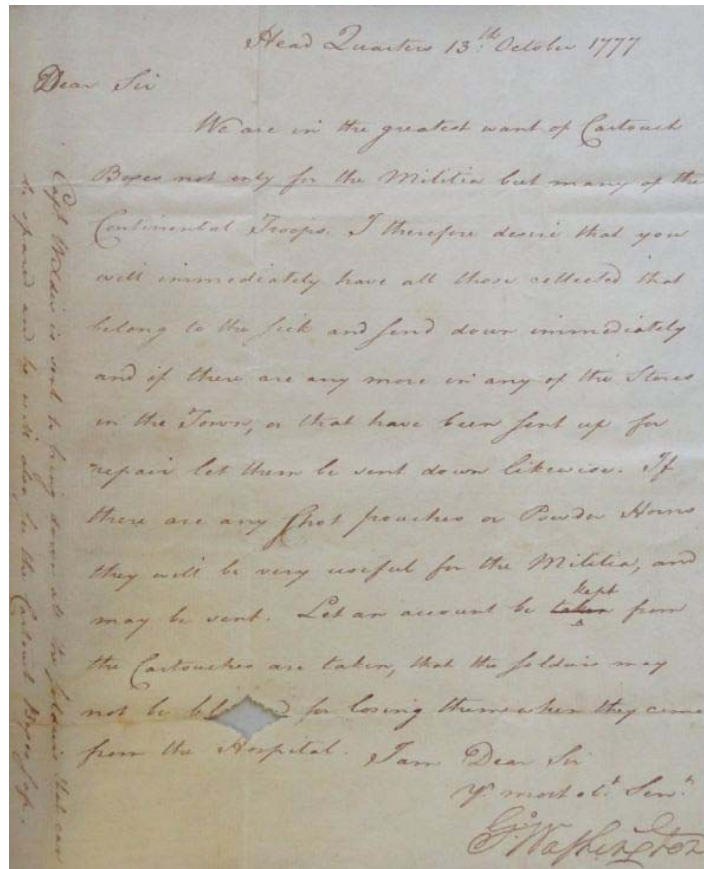 Head Quarters 13th. October 1777
Dear Sir
We are in the greatest want of Cartouch
Boxes not only for the Militia but many of the
Continental Troops. I therefore desire that you
will immediately have all those collected that
belong to the sick and send down immediately
and if there are any more in any of the Stores
in the Town, or that have been sent up for
repair let them be sent down likewise. If
there are any Shot pouches or Powder Horns
they will be very useful for the Militia, and
may be sent. Let an account be taken kept from
the Cartouches are taken, that the soldiers may
not be for losing them when they come
from the Hospital. I am Dear Sir
Yr. most obt. Servt.
Go. Washington
Capt is sent to bring down all the soldiers that can
be spared and he will also the Cartouch Boxes